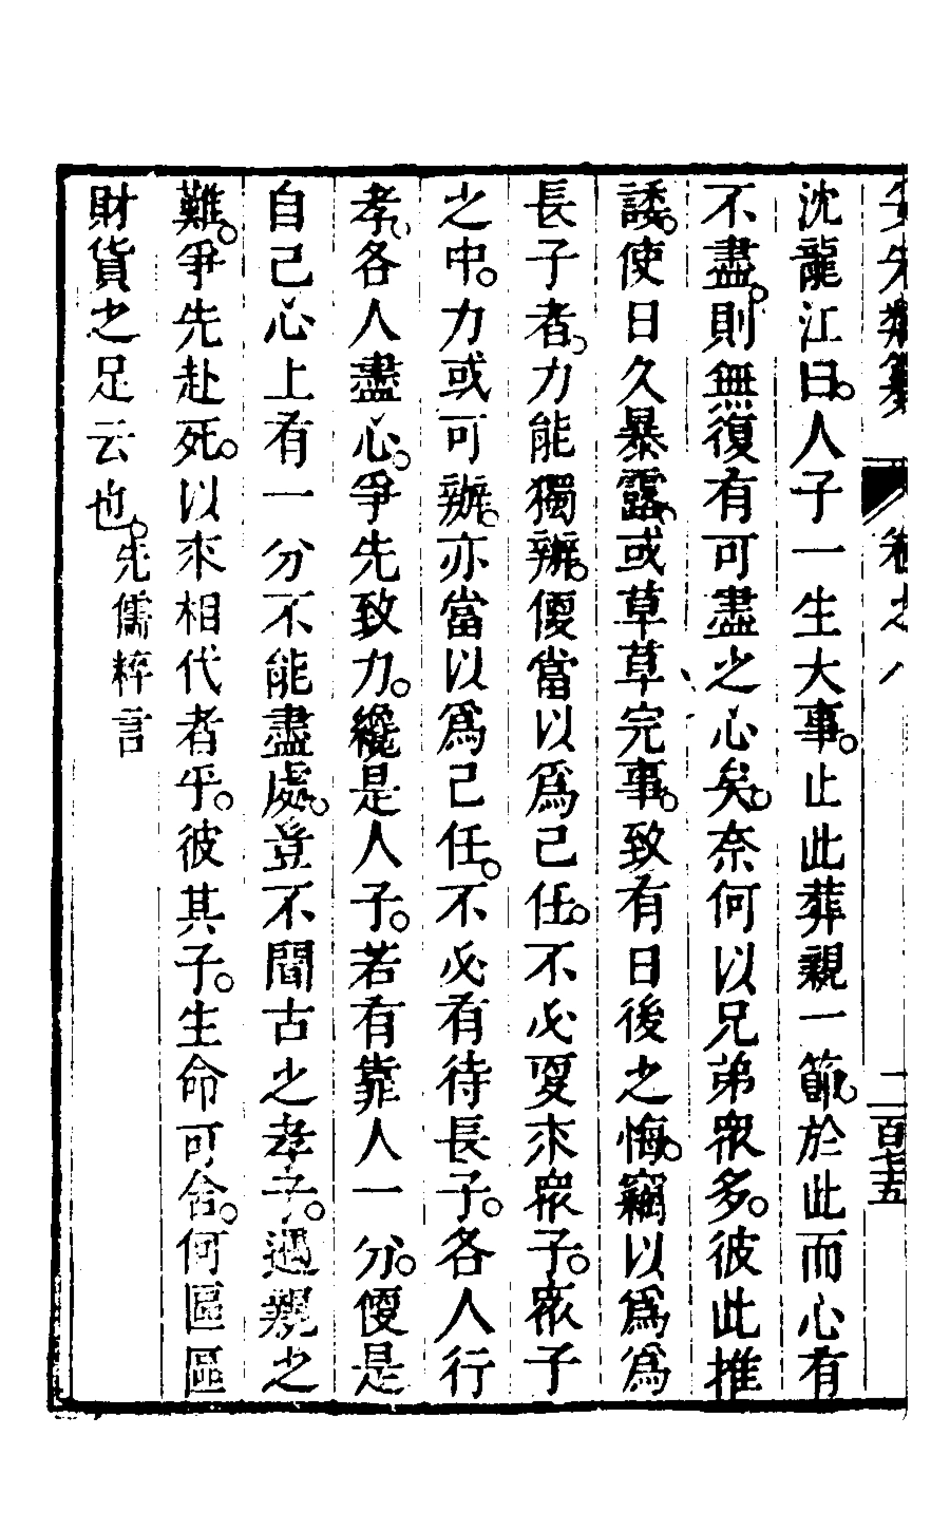 沈龍江曰。人子一生大事。止此葬親一節。於此而心有
不盡。則無復有可盡之心矣。奈何以兄弟衆多。彼此推
諉。使日久暴露。或草草完事。致有日後之悔。竊以爲爲
長子者。力能獨辦。便當以爲己任。不必要求衆子。衆子
之中。力或可辦。亦當以爲己任。不必有待長子。各人行
孝。各人盡心。爭先致力。纔是人子。若有靠人一分。便是
自己心上有一分不能盡處。豈不聞古之孝子。遇親之
難。爭先赴死。以求相代者乎。彼其子。生命可舍。何區區
財貨之足云也。先儒粹言
卷之八
二百七五